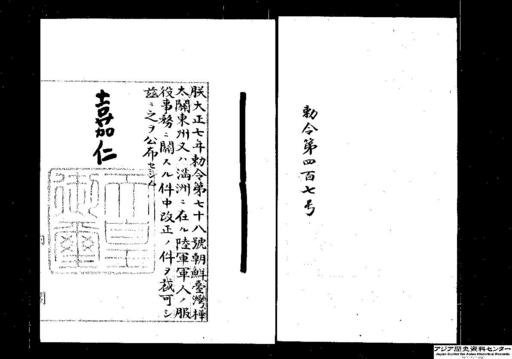 勅令第四百七号
朕大正七年勅令第七十八號朝鮮臺灣樺
太關東州又ハ滿洲ニ在ル陸軍軍人ノ服
役事務ニ關スル件中改正ノ件ヲ裁可シ
玆ニ之ヲ公布セシム
嘉仁
天皇御璽
アジア歴史資料センター
Japan Center for Asian Historical Records